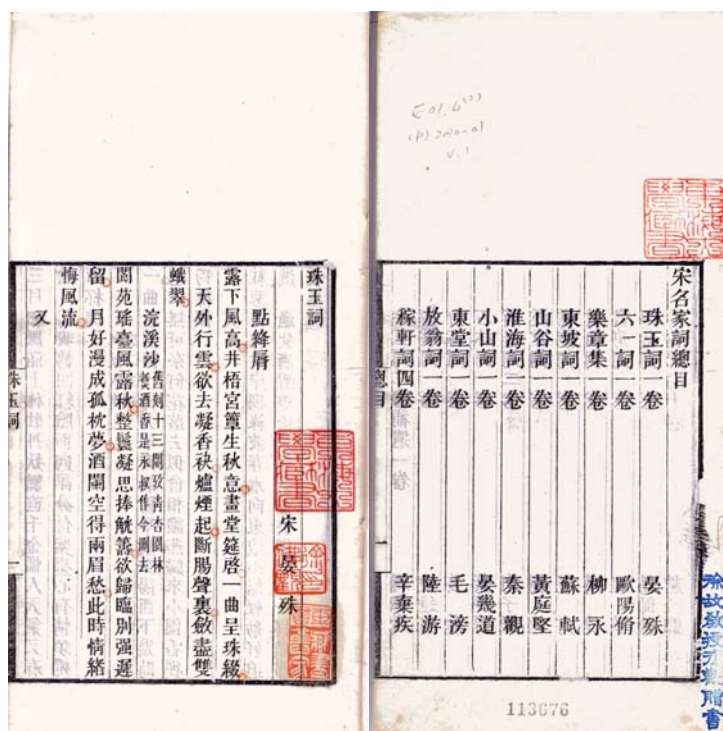 宋名家詞總目
珠玉詞一卷 晏殊
六一詞一卷 歐陽脩
樂章集一卷 柳永
東坡詞一卷 蘇軾
山谷詞一卷 黃庭堅
淮海詞一卷 秦觀
小山詞一卷 晏幾道
東堂詞一卷 毛滂
放翁詞一卷 陸游
稼軒詞四卷 辛棄疾
總目 一
v.1
113676
珠玉詞
點絳脣 宋 晏殊
露下風高井梧宮簟生秋意畫堂筵啓一曲呈珠綴
天外行雲欲去凝香袂爐煙起斷腸聲裏斂盡雙
蛾翠
浣溪沙 舊刻十三闋攷青杏園林
煮酒香是永叔作今刪去
閬苑瑤臺風露秋整鬟凝思捧觥籌欲歸臨別強遲
留 月好漫成孤枕夢酒闌空得兩眉愁此時情緒
悔風流
又
珠玉詞 一